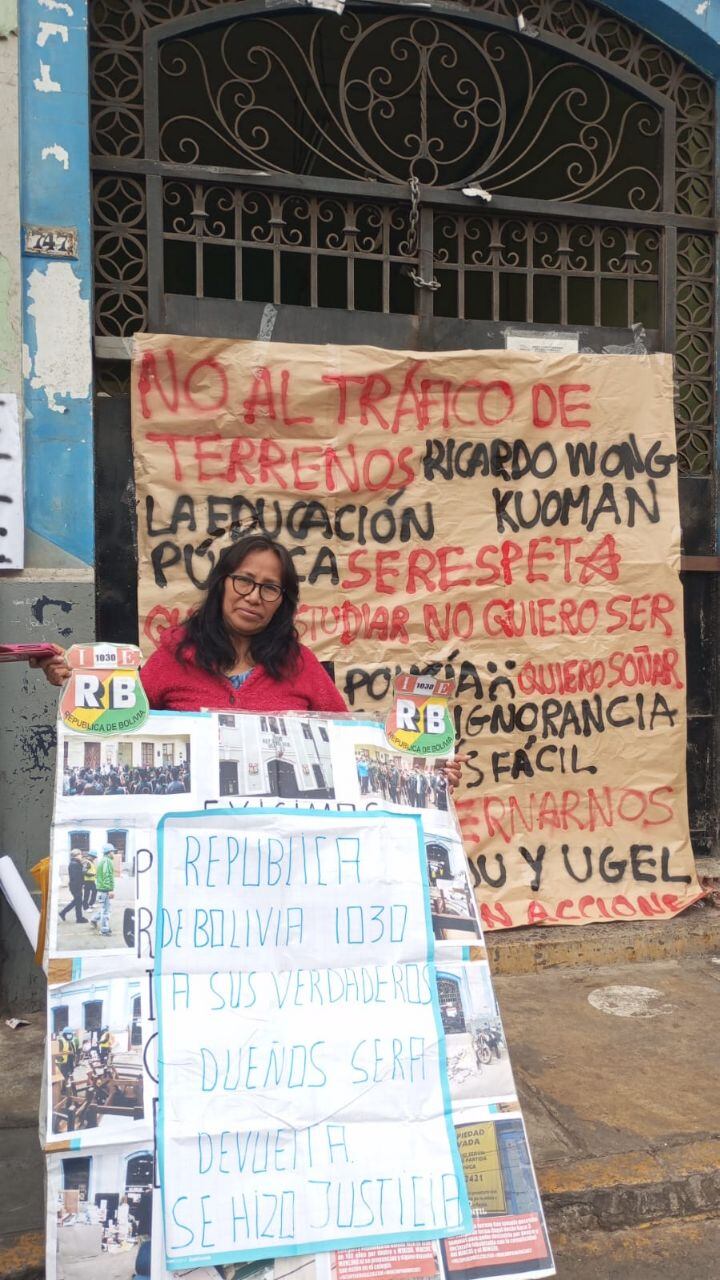 747
NO AL TRÁFICO DE
TERRENOS RICARDO WONG
KUOMAN
LA EDUCACIÓN
SE RESPETA
ESTUDIAR NO QUIERO SER
POLICÍA QUIERO SOÑAR
IGNORANCIA
FÁCIL
Y UGEL
ACCIONE
I 1030 E
RB
REPUBLICA DE BOLIVIA
1030 E
RB
REPUBLICA DE BOLIVIA
EXIGIMOS
REPUBLICA
DE BOLIVIA 1030
A SUS VERDADEROS
DUEÑOS SERA
DEVUELTA.
SE HIZO JUSTICIA